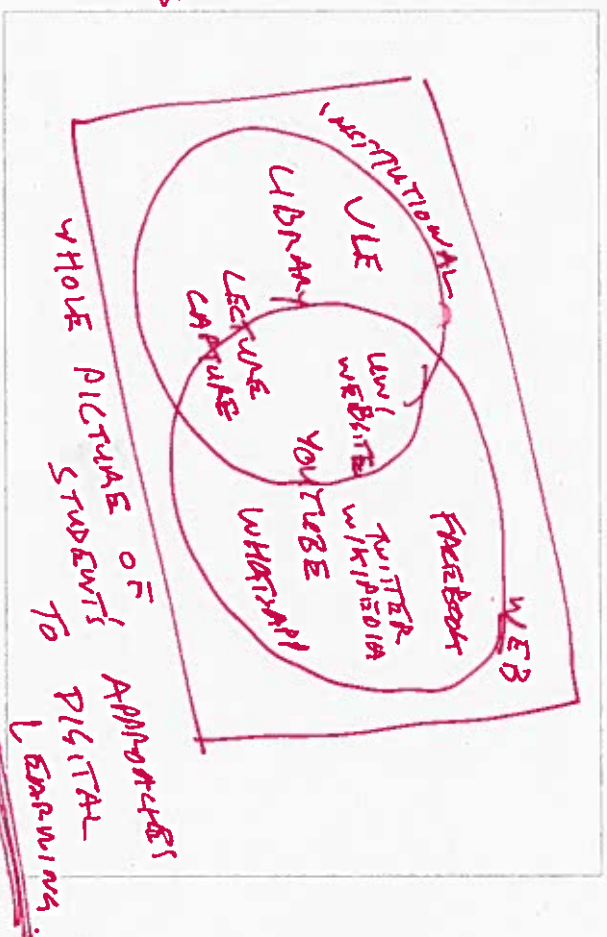 INSTITUTIONAL
WEB
VLE
LIBRARY
LECTURE
CAPTURE
UNI
WEBSITE
YOUTUBE
FACEBOOK
TWITTER
WIKIPEDIA
WHATSAPP
WHOLE PICTURE OF
STUDENTS' APPROACHES
TO DIGITAL
LEARNING.